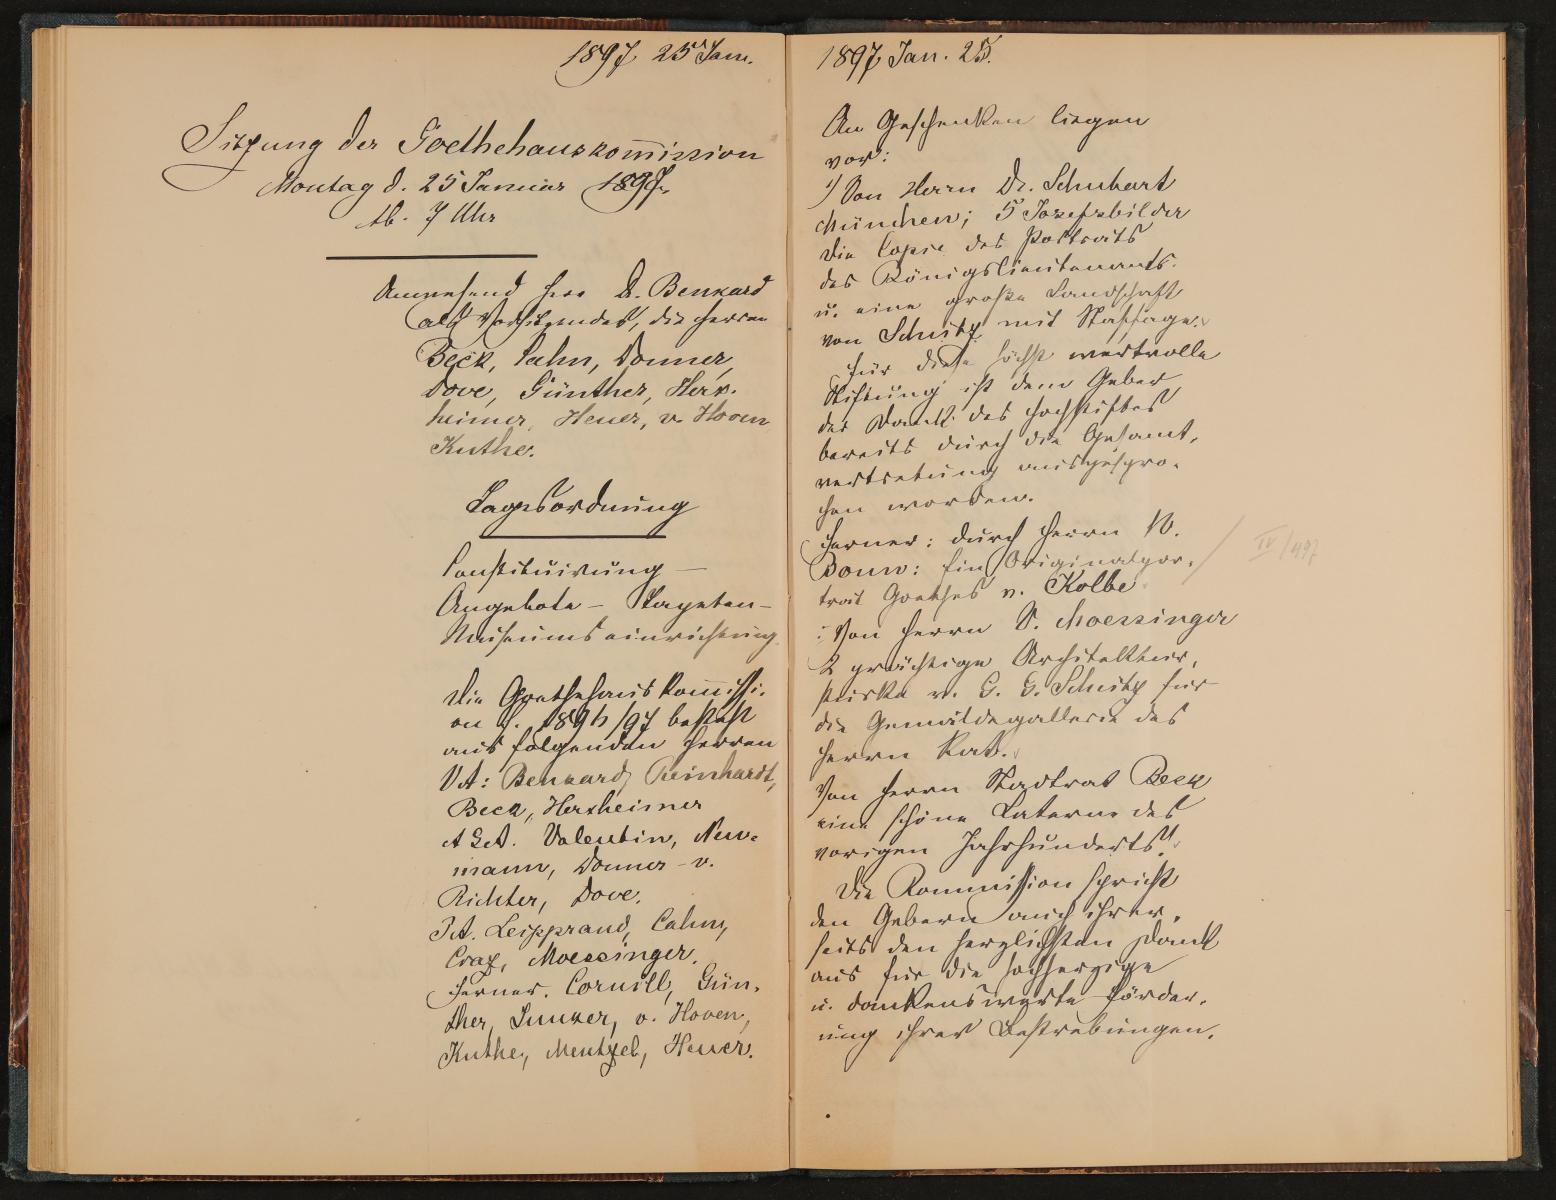 1897 25 Jan.
Sitzung der Goethehauskommission
Montag d. 25 Januar 1897
Ab. 7 Uhr
Anwesend Herr Dr. Benkard
als Vorsitzender, die Herren
Beck, Cahn, Donner,
Dove, Günther, Herx-
heimer, Heuer, v. Hoven
Kuthe.
Tagesordnung
Constituirung –
Angebote – Tapeten –
Museumseinrichtung.
Die Goethehauskommissi-
on f. 1896/97 besteht
aus folgenden Herren
VA: Benkard, Reinhardt,
Beck, Herxheimer
AGA. Valentin, Neu-
mann, Donner – v.
Richter, Dove.
JA. Leipprand, Cahn,
Moessinger.
Ferner. Cornill, Gün-
ther, Junker, v. Hoven,
Kuthe, Mentzel, Heuer.
1897 Jan. 25.
An Geschenken liegen
vor:
1) Von Herrn Dr. Schubart
München; 5 Josefsbilder
die Copie des Portraits
des Königslieutenants.
u. eine große Landschaft
von Schütz mit Staffage.
Für diese höchst wertvolle
Stiftung ist dem Geber
der Dank des Hochstiftes
bereits durch die Gesamt-
vertretung ausgespro-
chen worden.
Ferner: durch Herrn B.
Bonn: Ein Originalpor-
trait Goethes v. Kolbe
Von Herrn V. Moessinger
2 prächtige Architektur-
stücke v. C. G. Schütz für
die Gemäldegallerie des
Herrn Rat.
Von Herrn Stadtrat Beck
eine schöne Laterne des
vorigen Jahrhunderts.
Die Kommission spricht
den Gebern auch ihrer-
seits den herzlichsten Dank
aus für die hochherzige
u. dankenswerte Förder-
ung ihrer Bestrebungen.
IV/497